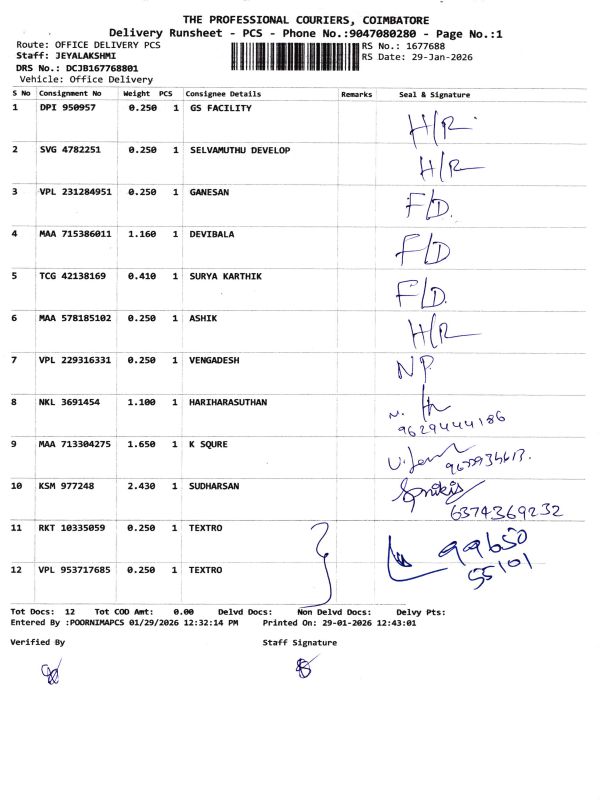 THE PROFESSIONAL COURIERS, COIMBATORE
Delivery Runsheet - PCS - Phone No.:9047080280 - Page No.:1
Route: OFFICE DELIVERY PCS RS No.: 1677688
Staff: JEYALAKSHMI RS Date: 29-Jan-2026
DRS No.: DCJB167768801
Vehicle: Office Delivery
S No Consignment No Weight PCS Consignee Details Remarks Seal & Signature
1 DPI 950957 0.250 1 GS FACILITY H/R
2 SVG 4782251 0.250 1 SELVAMUTHU DEVELOP H/R
3 VPL 231284951 0.250 1 GANESAN F/D.
4 MAA 715386011 1.160 1 DEVIBALA F/D
5 TCG 42138169 0.410 1 SURYA KARTHIK F/D.
6 MAA 578185102 0.250 1 ASHIK H/R
7 VPL 229316331 0.250 1 VENGADESH NP.
8 NKL 3691454 1.100 1 HARIHARASUTHAN
9629444186
9 MAA 713304275 1.650 1 K SQURE
10 KSM 977248 2.430 1 SUDHARSAN
6374369232
11 RKT 10335059 0.250 1 TEXTRO 99650
55101
12 VPL 953717685 0.250 1 TEXTRO
Tot Docs: 12 Tot COD Amt: 0.00 Delvd Docs: Non Delvd Docs: Delvy Pts:
Entered By :POORNIMAPCS 01/29/2026 12:32:14 PM Printed On: 29-01-2026 12:43:01
Verified By Staff Signature